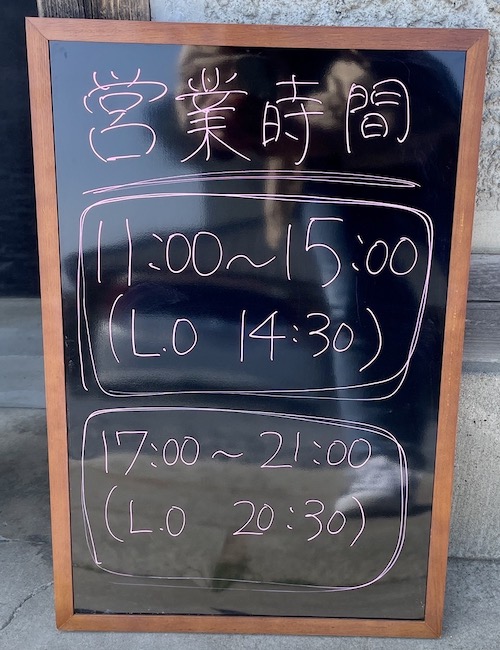 営業時間
11:00～15:00
(L.O 14:30)
17:00～21:00
(L.O 20:30)